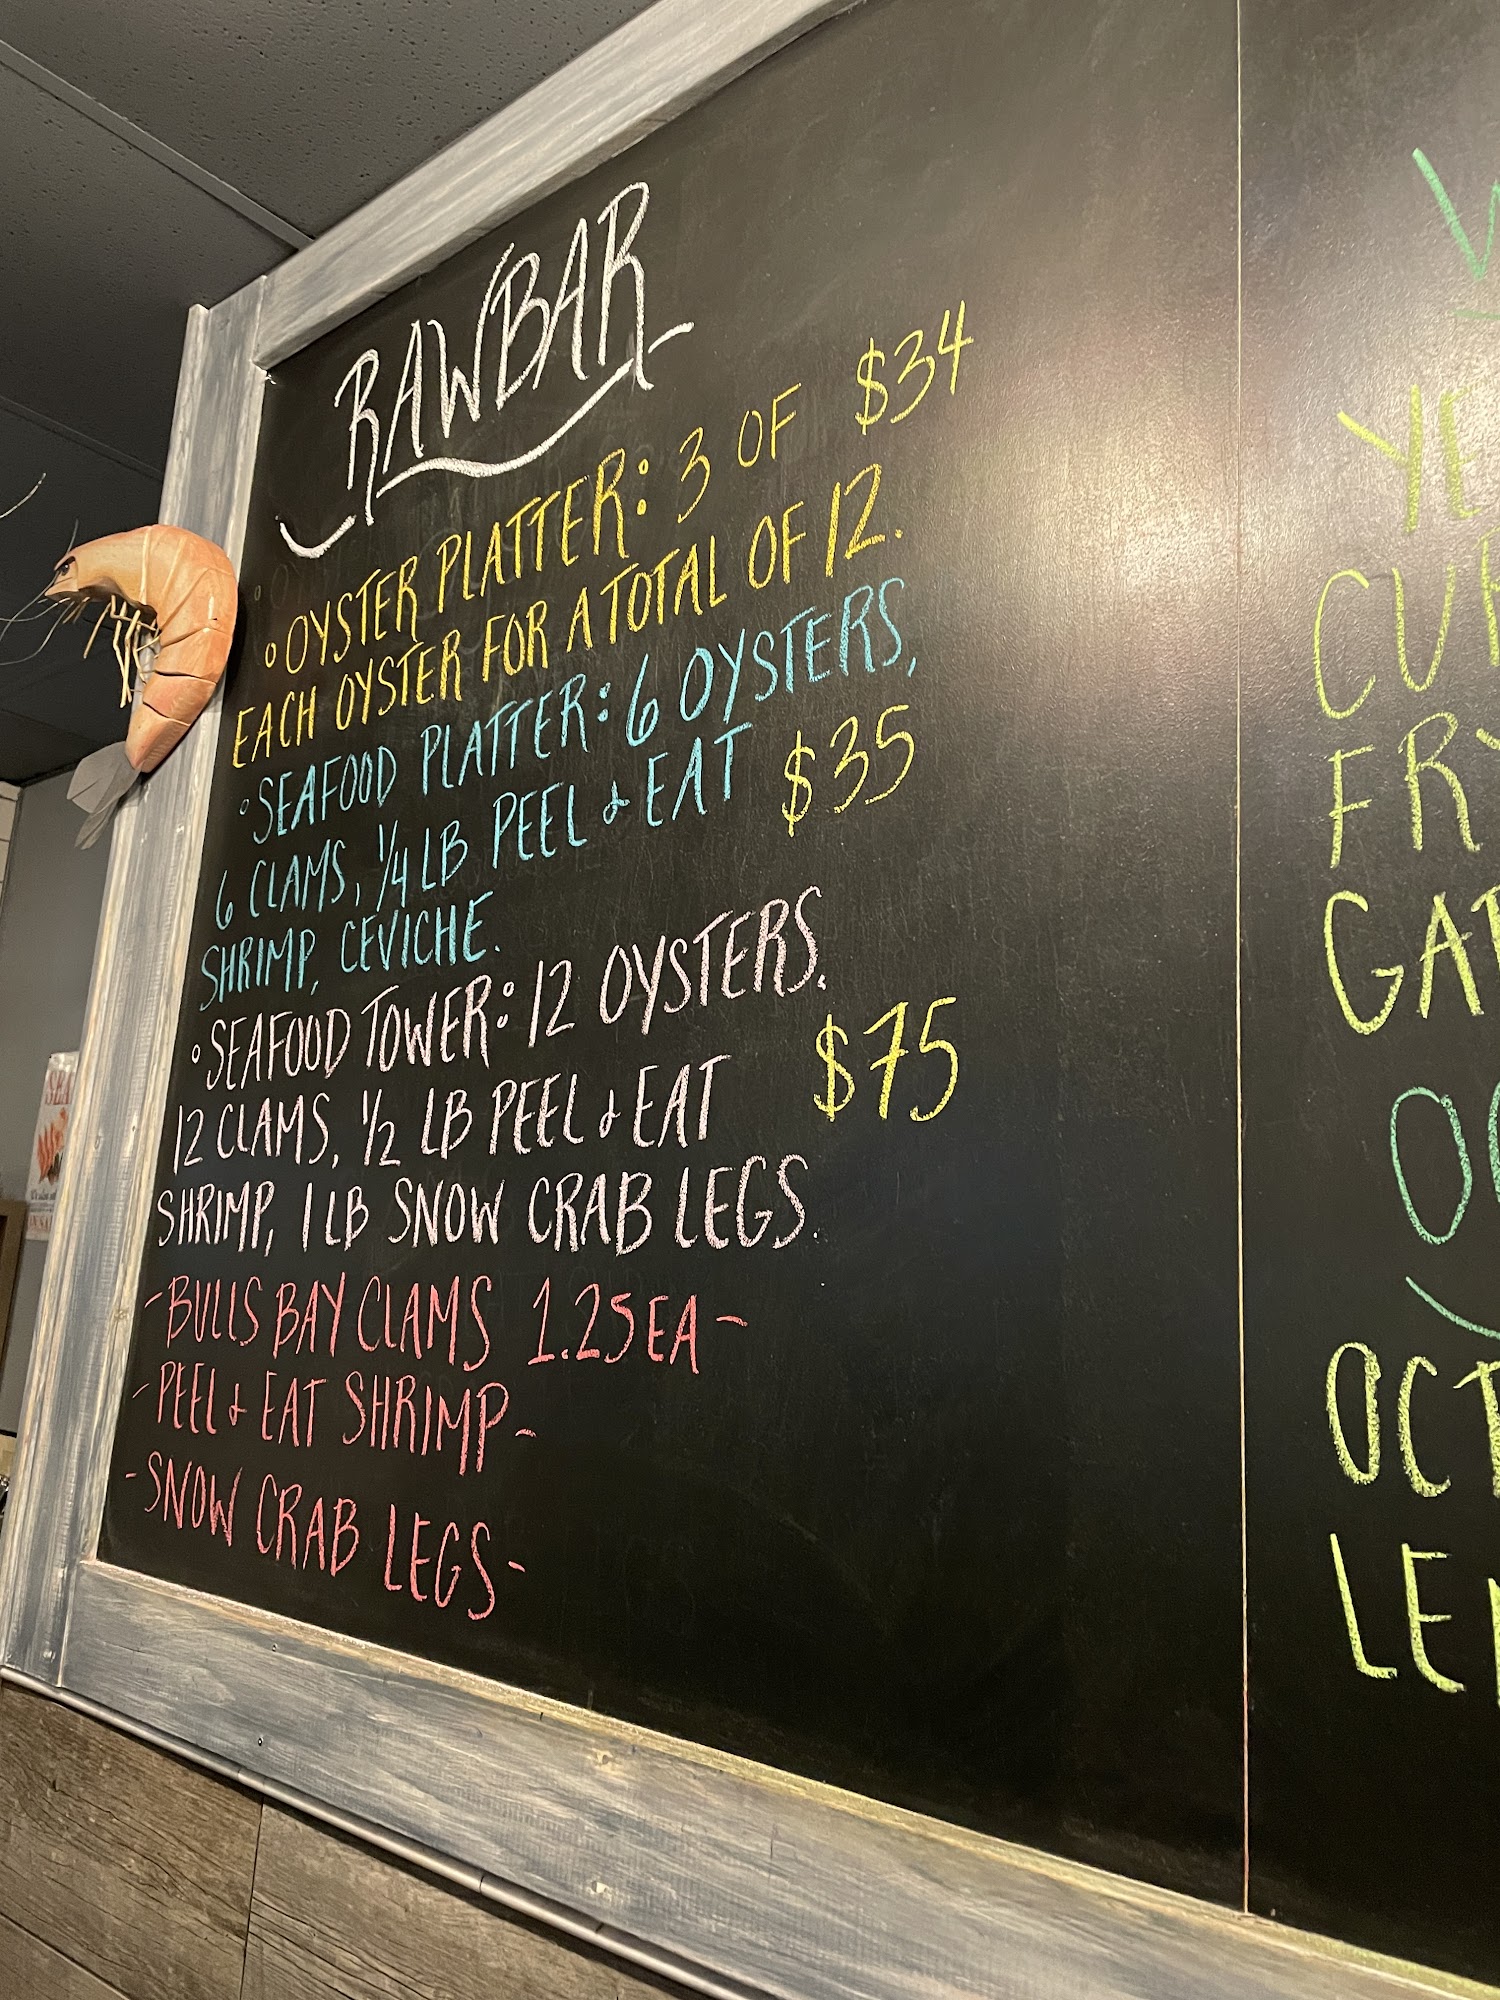 RAWBAR
◦ OYSTER PLATTER: 3 OF $34
EACH OYSTER FOR A TOTAL OF 12.
◦ SEAFOOD PLATTER: 6 OYSTERS,
6 CLAMS, 1/4 LB PEEL & EAT $35
SHRIMP, CEVICHE.
◦ SEAFOOD TOWER: 12 OYSTERS.
12 CLAMS, 1/2 LB PEEL & EAT $75
SHRIMP, 1 LB SNOW CRAB LEGS.
- BULLS BAY CLAMS 1.25 EA -
- PEEL & EAT SHRIMP -
- SNOW CRAB LEGS -